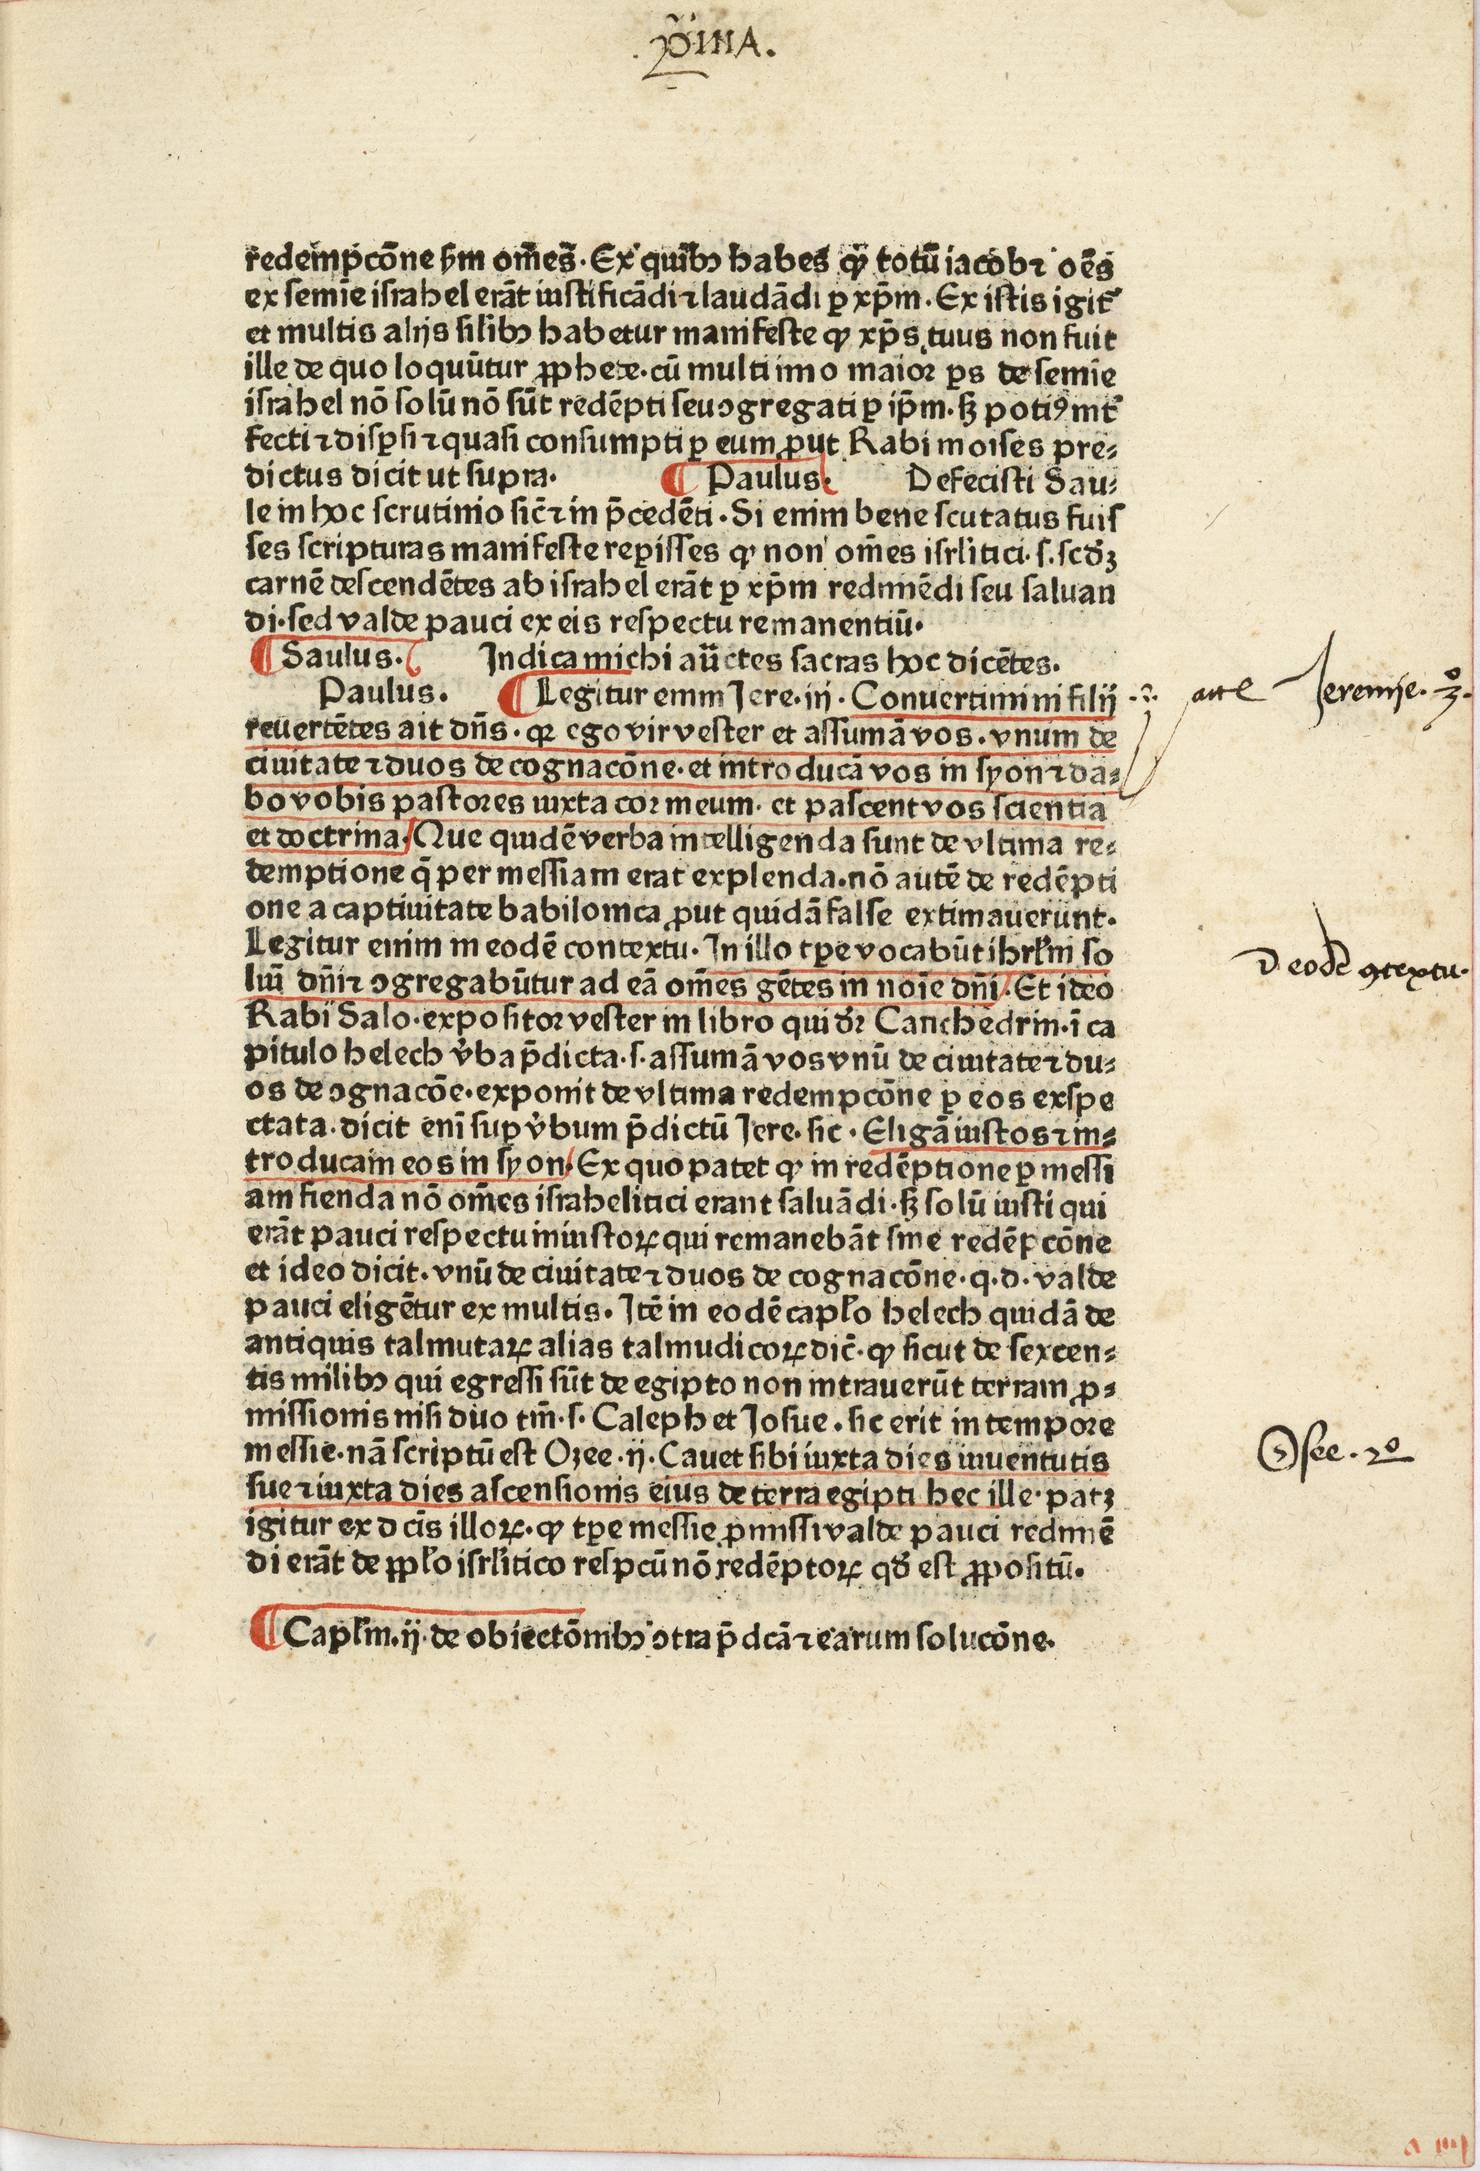 redempcōne ẜm om̄es̄. Ex quibꝫ habes ꝙ totū iacob ⁊ oēs
ex semīe israhel erāt iustificādi ⁊ laudādi ꝑ xp̄m. Ex istis igit᷑
et multis alijs silibꝫ habetur manifeste ꝙ xp̄s tuus non fuit
ille de quo loquūtur ꝓphete. cū multi imo maior ꝑs de semīe
israhel nō solū nō sūt redēpti seu ꝯgregati ꝑ ip̄m. sꝫ poti⁹ mt᷑
fecti ⁊ disꝑsi ⁊ quasi consumpti ꝑ eum ꝓut Rabi moises pre⸗
dictus dicit ut supra. ¶ Paulus. Defecisti Sau⸗
le in hoc scrutinio sic̄ ⁊ in p̄cedēti. Si enim bene scutatus fuis
ses scripturas manifeste reꝑisses ꝙ non om̄es isrl̄itici. s. scd̄ꝫ
carnē descendētes ab israhel erāt ꝑ xp̄m redimēdi seu saluan
di. sed valde pauci ex eis respectu remanentiū.
¶ Saulus. Indica michi auc̄tes sacras hoc dicētes.
Paulus. ¶ Legitur enim Jere. iij. Conuertimini filij
reuertētes ait dn̄s. qꝛ ego vir vester et assumā vos. vnum de
ciuitate ⁊ duos de cognacōne. et introducā vos in syon ⁊ da⸗
bo vobis pastores iuxta cor meum. et pascent vos scientia
et doctrina. Que quidē verba intelligenda sunt de vltima re⸗
demptione q̄ per messiam erat explenda. nō autē de redēpti
one a captiuitate babilonica ꝓut quidā false extimauerunt.
Legitur enim in eodē contextu. In illo tꝑe vocabūt ihrl̄m so
liū dn̄i ⁊ ꝯgregabūtur ad eā om̄es gētes in noīe dn̄i. Et ideo
Rabi Salo. expositor vester in libro qui dr̄ Canchedrin. ī ca
pitulo helech v̄ba p̄dicta. s. assumā vos vnū de ciuitate ⁊ du⸗
os de ꝯgnacōe. exponit de vltima redempcōne ꝑ eos exspe
ctata. dicit enī suꝑ v̄bum p̄dictū Jere. sic. Eligā iustos ⁊ in⸗
troducam eos in syon. Ex quo patet ꝙ in redēptione ꝑ messi
am fienda nō om̄es israhelitici erant saluādi. sꝫ solū iusti qui
erāt pauci respectu iniustoꝝ qui remanebāt sine redēpcōne
et ideo dicit. vnū de ciuitate ⁊ duos de cognacōne. q. d. valde
pauci eligētur ex multis. Itē in eodē capl̄o helech quidā de
antiquis talmutaꝝ alias talmudicoꝝ dic̄. ꝙ sicut de sexcen⸗
tis milibꝫ qui egressi sūt de egipto non intrauerūt terram ꝓ⸗
missionis nisi duo tm̄. s. Caleph et Josue. sic erit in tempore
messie. nā scriptū est Ozee. ij. Cauet sibi iuxta dies iuuentutis
sue ⁊ iuxta dies ascensionis eius de terra egipti hec ille. patꝫ
igitur ex dcīs illoꝝ. ꝙ tꝑe messie ꝓmissi valde pauci redimē
di erāt de ꝓpl̄o isrl̄itico respcū nō redēptoꝝ qd̄ est ꝓpositū.
¶ Capl̄m. ij. de obiectōnibꝫ ꝯtra p̄dcā ⁊ earum solucōne.
Jeremie. 3°.
D eodē ꝯtextu.
Osee. 2°
a iiij